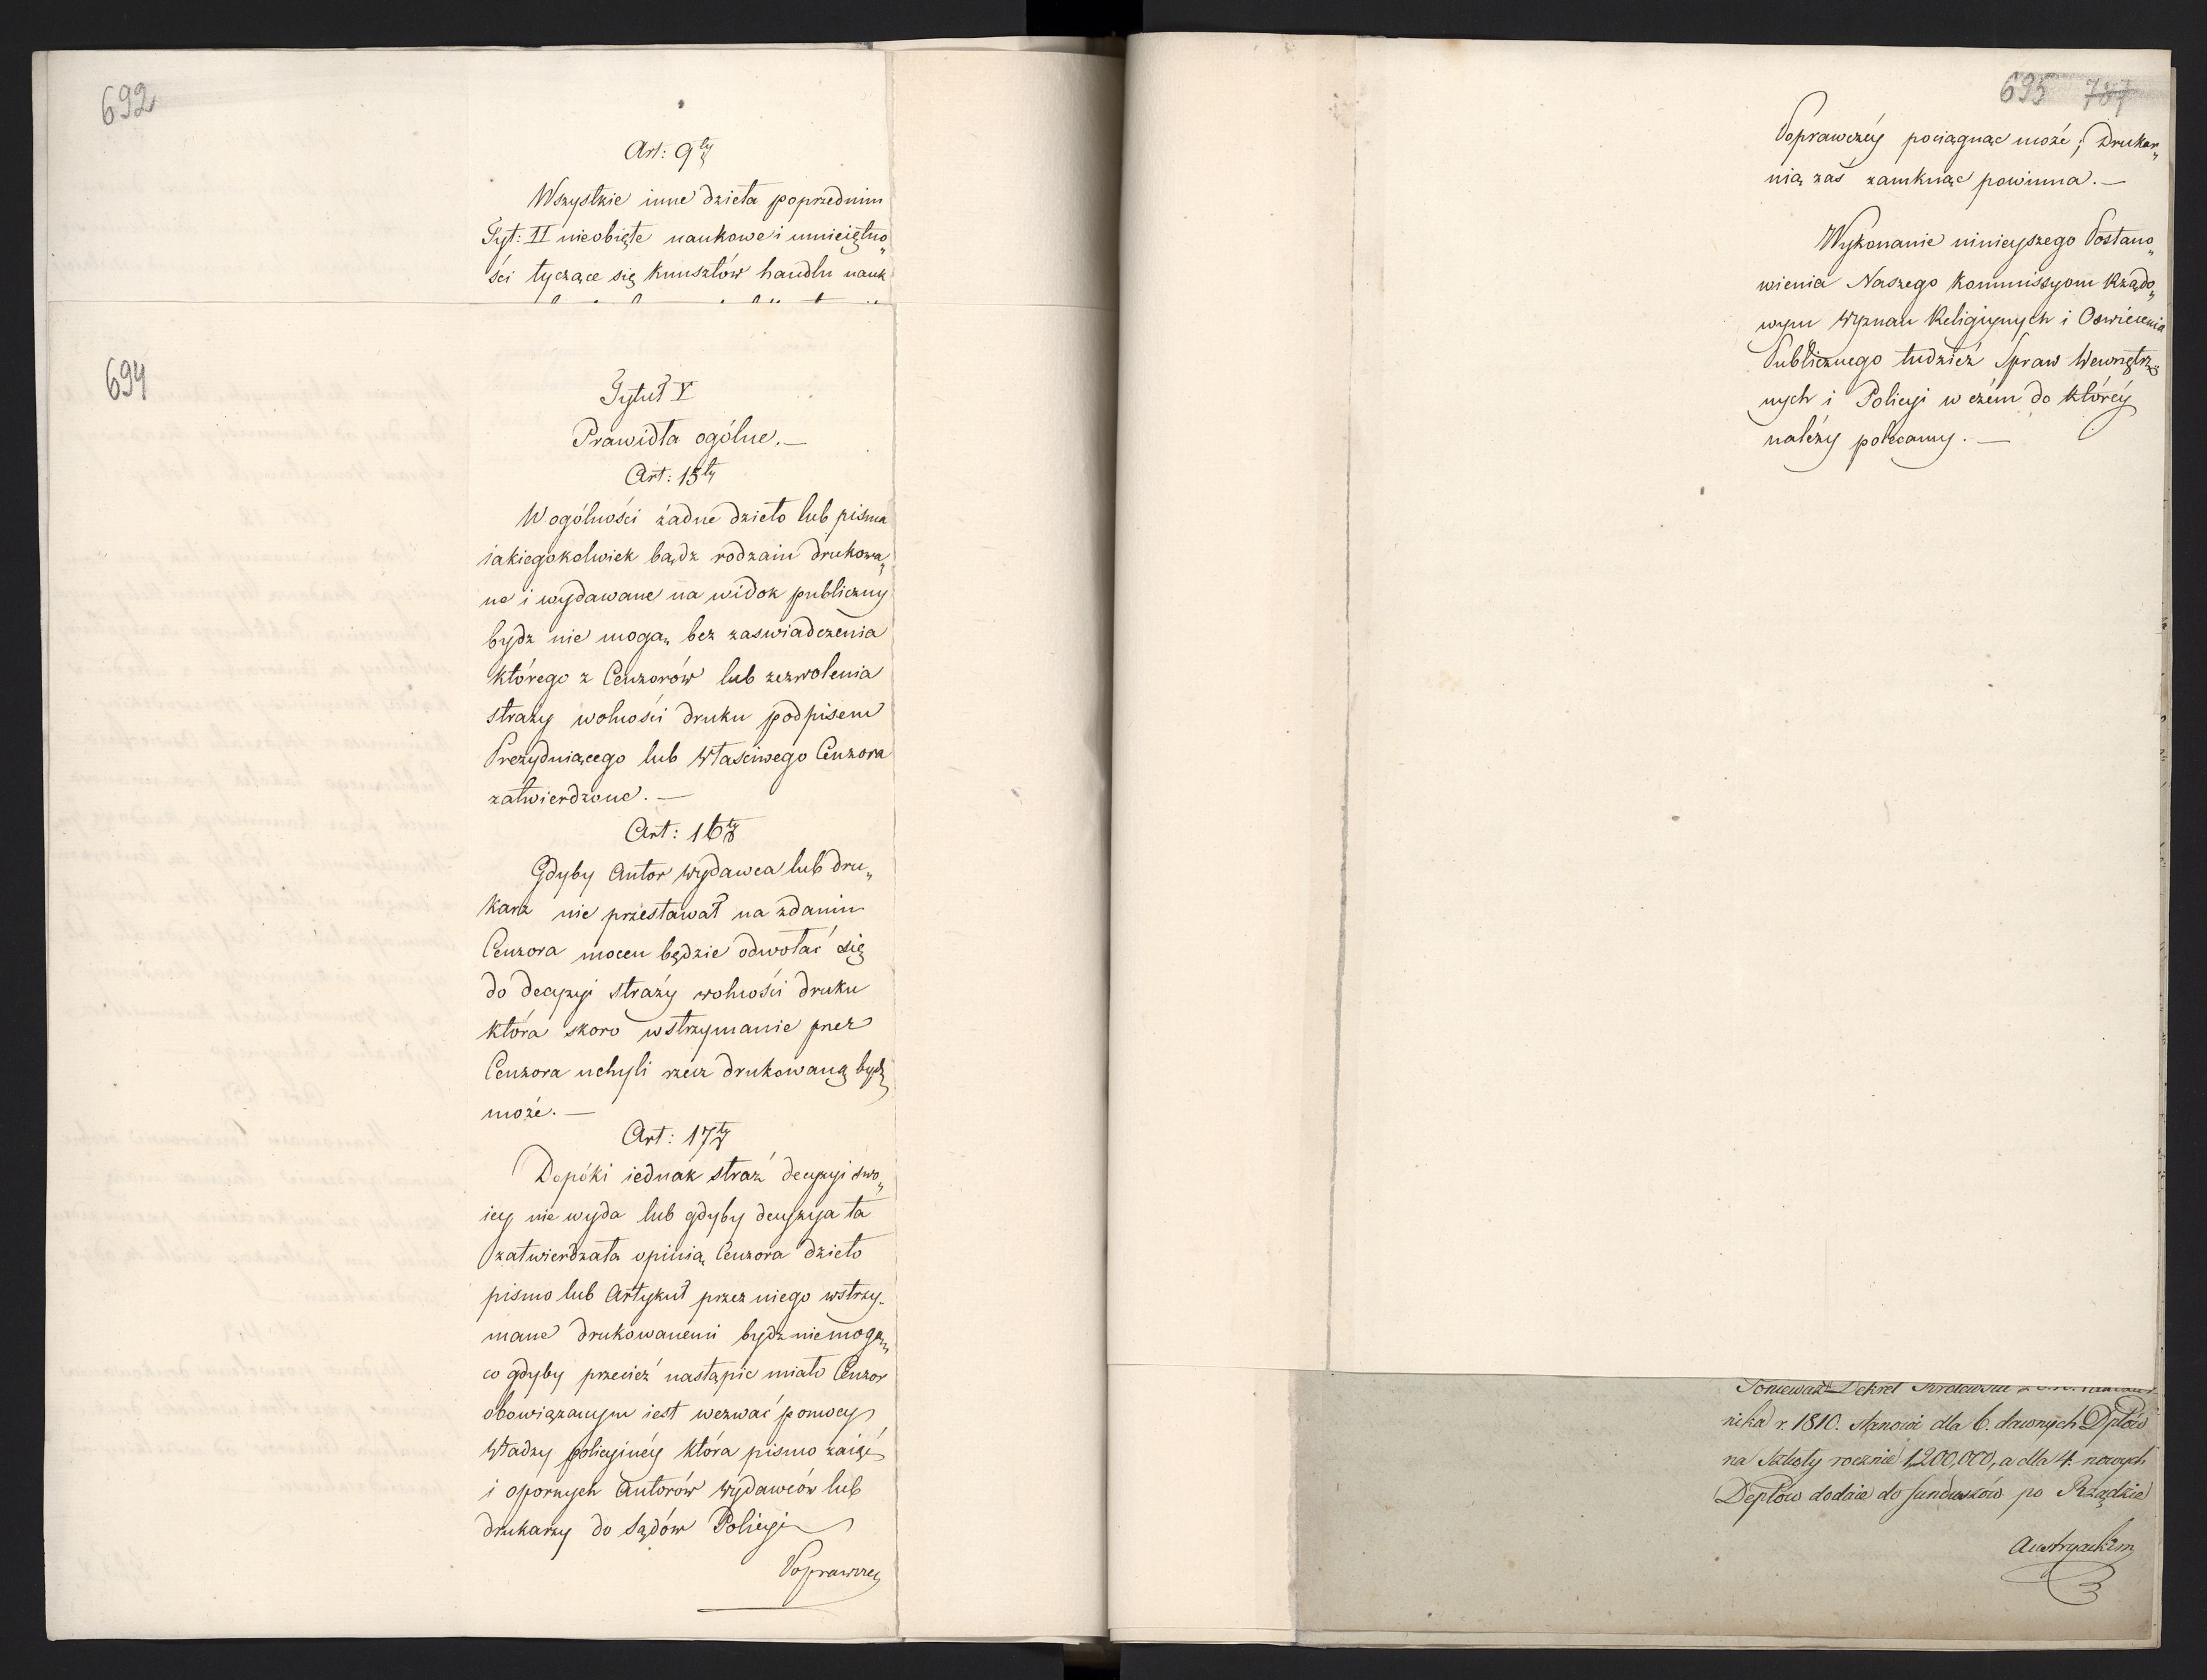 692
Art: 9ty
Wszystkie inne dzieła poprzednim
Tyt: II nieobięte naukowe i umieiętno„
ści tyczące się kunsztów handlu nauk
694
Tytuł V
Prawidła ogólne.—
Art: 15ty
W ogólności żadne dzieło lub pisma
iakiegokolwiek bądz rodzaiu drukowa„
ne i wydawane na widok publiczny
bydz nie mogą bez zaswiadczenia
którego z Cenzorów lub zezwolenia
straży wolności druku podpisem
Prezyduiącego lub Właściwego Cenzora
zatwierdzone.—
Art: 16ty
Gdyby Autor wydawca lub dru„
karz nie przestawał na zdaniu
Cenzora mocen będzie odwołać się
do decyzyi straży wolności druku
która skoro wstrzymanie przez
Cenzora uchyli rzecz drukowaną bydź
może.—
Art: 17ty
Dopóki iednak straż decyzyi swo„
iey nie wyda lub gdyby decyzya ta
zatwierdzała opinią Cenzora dzieło
pismo lub Artykuł przez niego wstrzy-
mane drukowanemi bydz niemogą,
co gdyby przecież nastąpic miało Cenzor
obowiązanym iest wezwać pomocy
Władzy policyinéy która pismo zaiąć
i opornych Autorów wydawców lub
drukarzy do Sądów Policyi
Poprawczey
695 787
Poprawczéy pociągnąc może; Drukar„
nią zaś zamknąc powinna.—
Wykonanie ninieyszego Postano„
wienia Naszego Kommissyom Rządo„
wym Wyznań Religiynych i Oswiecenia
Publicznego tudzież Spraw Wewnętrz„
nych i Policyi w czém do któréy
należy polecamy.—
Ponieważ Dekret
nika r. 1810. stanowi dla 6. dawnych Dptów
na Szkoły rocznie 1,200,000, a dla 4. nowych
Deptow dodaie do funduszów po Rządzie
Austryackim